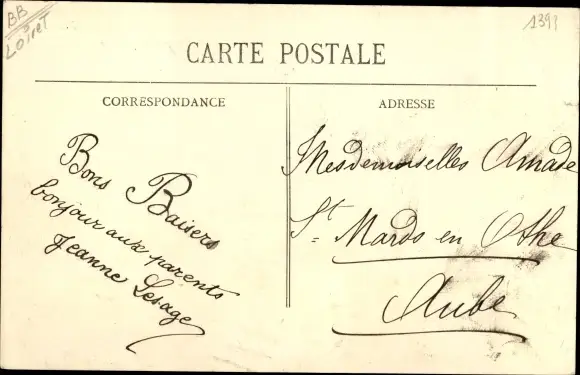 BB
Loiret
1391
CARTE POSTALE
CORRESPONDANCE
Bons Baisers
bonjour aux parents
Jeanne Lesage
ADRESSE
Mesdemoiselles Amade
St Mards en Othe
Aube